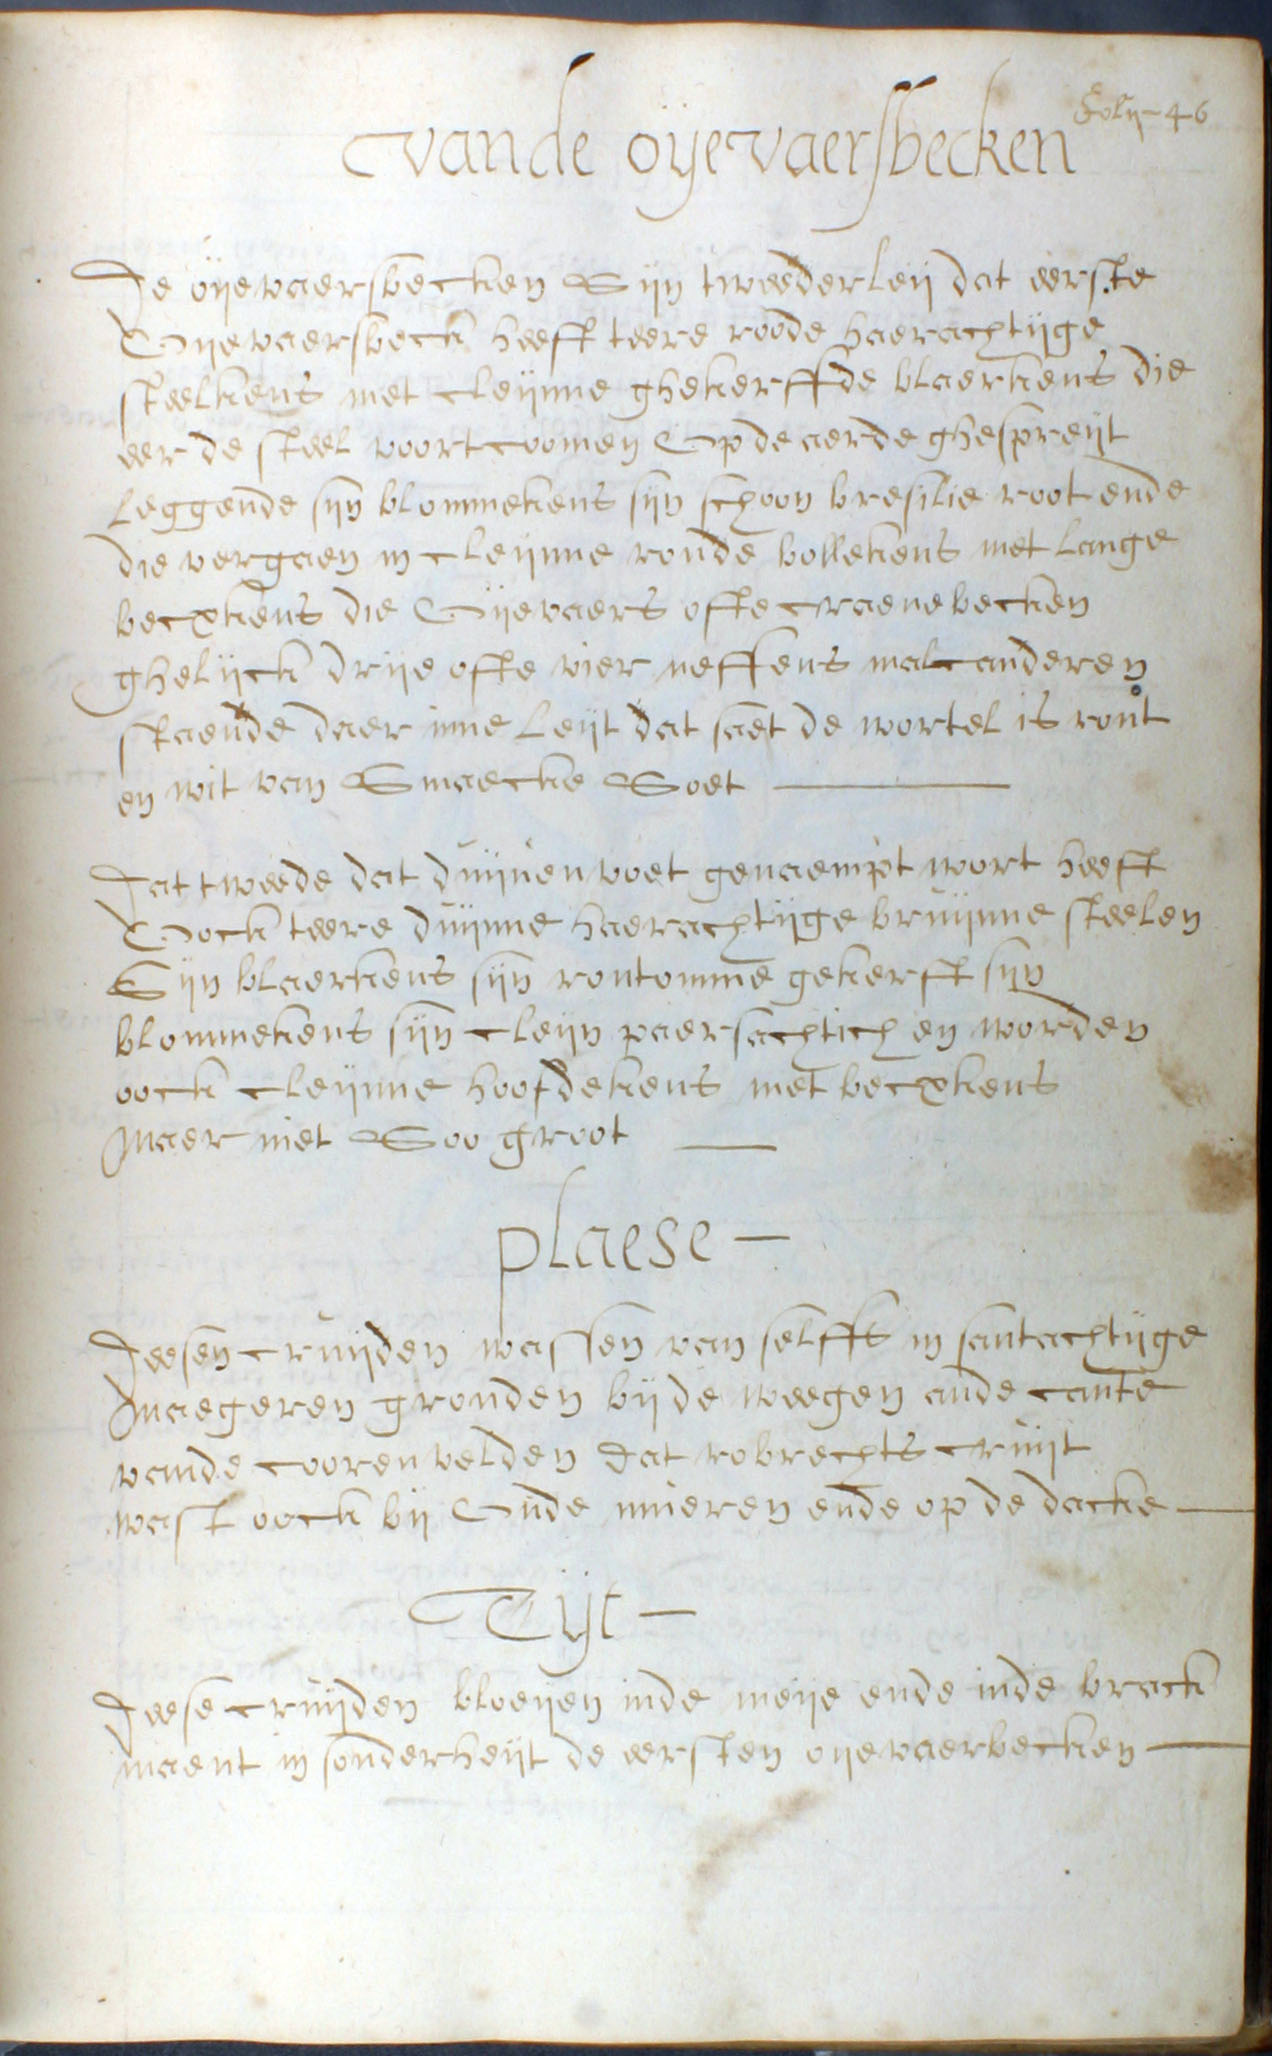 Folij 46
vande oijevaersbecken
De oijevaersbecken Sijn tweederleij dat eerste
Oijevaersbeck heeft teere roode haerachtijge
steelkens met cleijnne ghekerffde blaerkens die
eer de steel voortcoomen Op de aerde ghespreijt
leggende sijn blommekens sijn schoon bresilie root ende
die vergaen in cleijnne ronde bollekens met lange
becxkens die Oijevaers ofte craenebecken
ghelijck drije ofte vier neffens malcanderen
staende daer inne leijt dat saet de wortel is ront
en wit van Smaecke Soet
Dat tweede dat duijven voet genaempt wort heeft
Oock teere duijnne haerachtijge bruijnne steelen
Sijn blaerkens sijn rontomme gekerft sijn
blommekens sijn cleijn paersachtich en worden
oock cleijnne hoofdekens met becxkens
Maer niet Soo groot
plaese
Deesen cruijden wassen van selffs in santachtijge
Maegeren gronden bij de weegen ande cante
vande coorenvelden dat robrechts cruijt
wast oock bij Oude mueren ende op de dacke
Tijt
Deese cruijden bloeijen inde meije ende inde brack
maent in sonderheijt de eersten oijevaerbecken